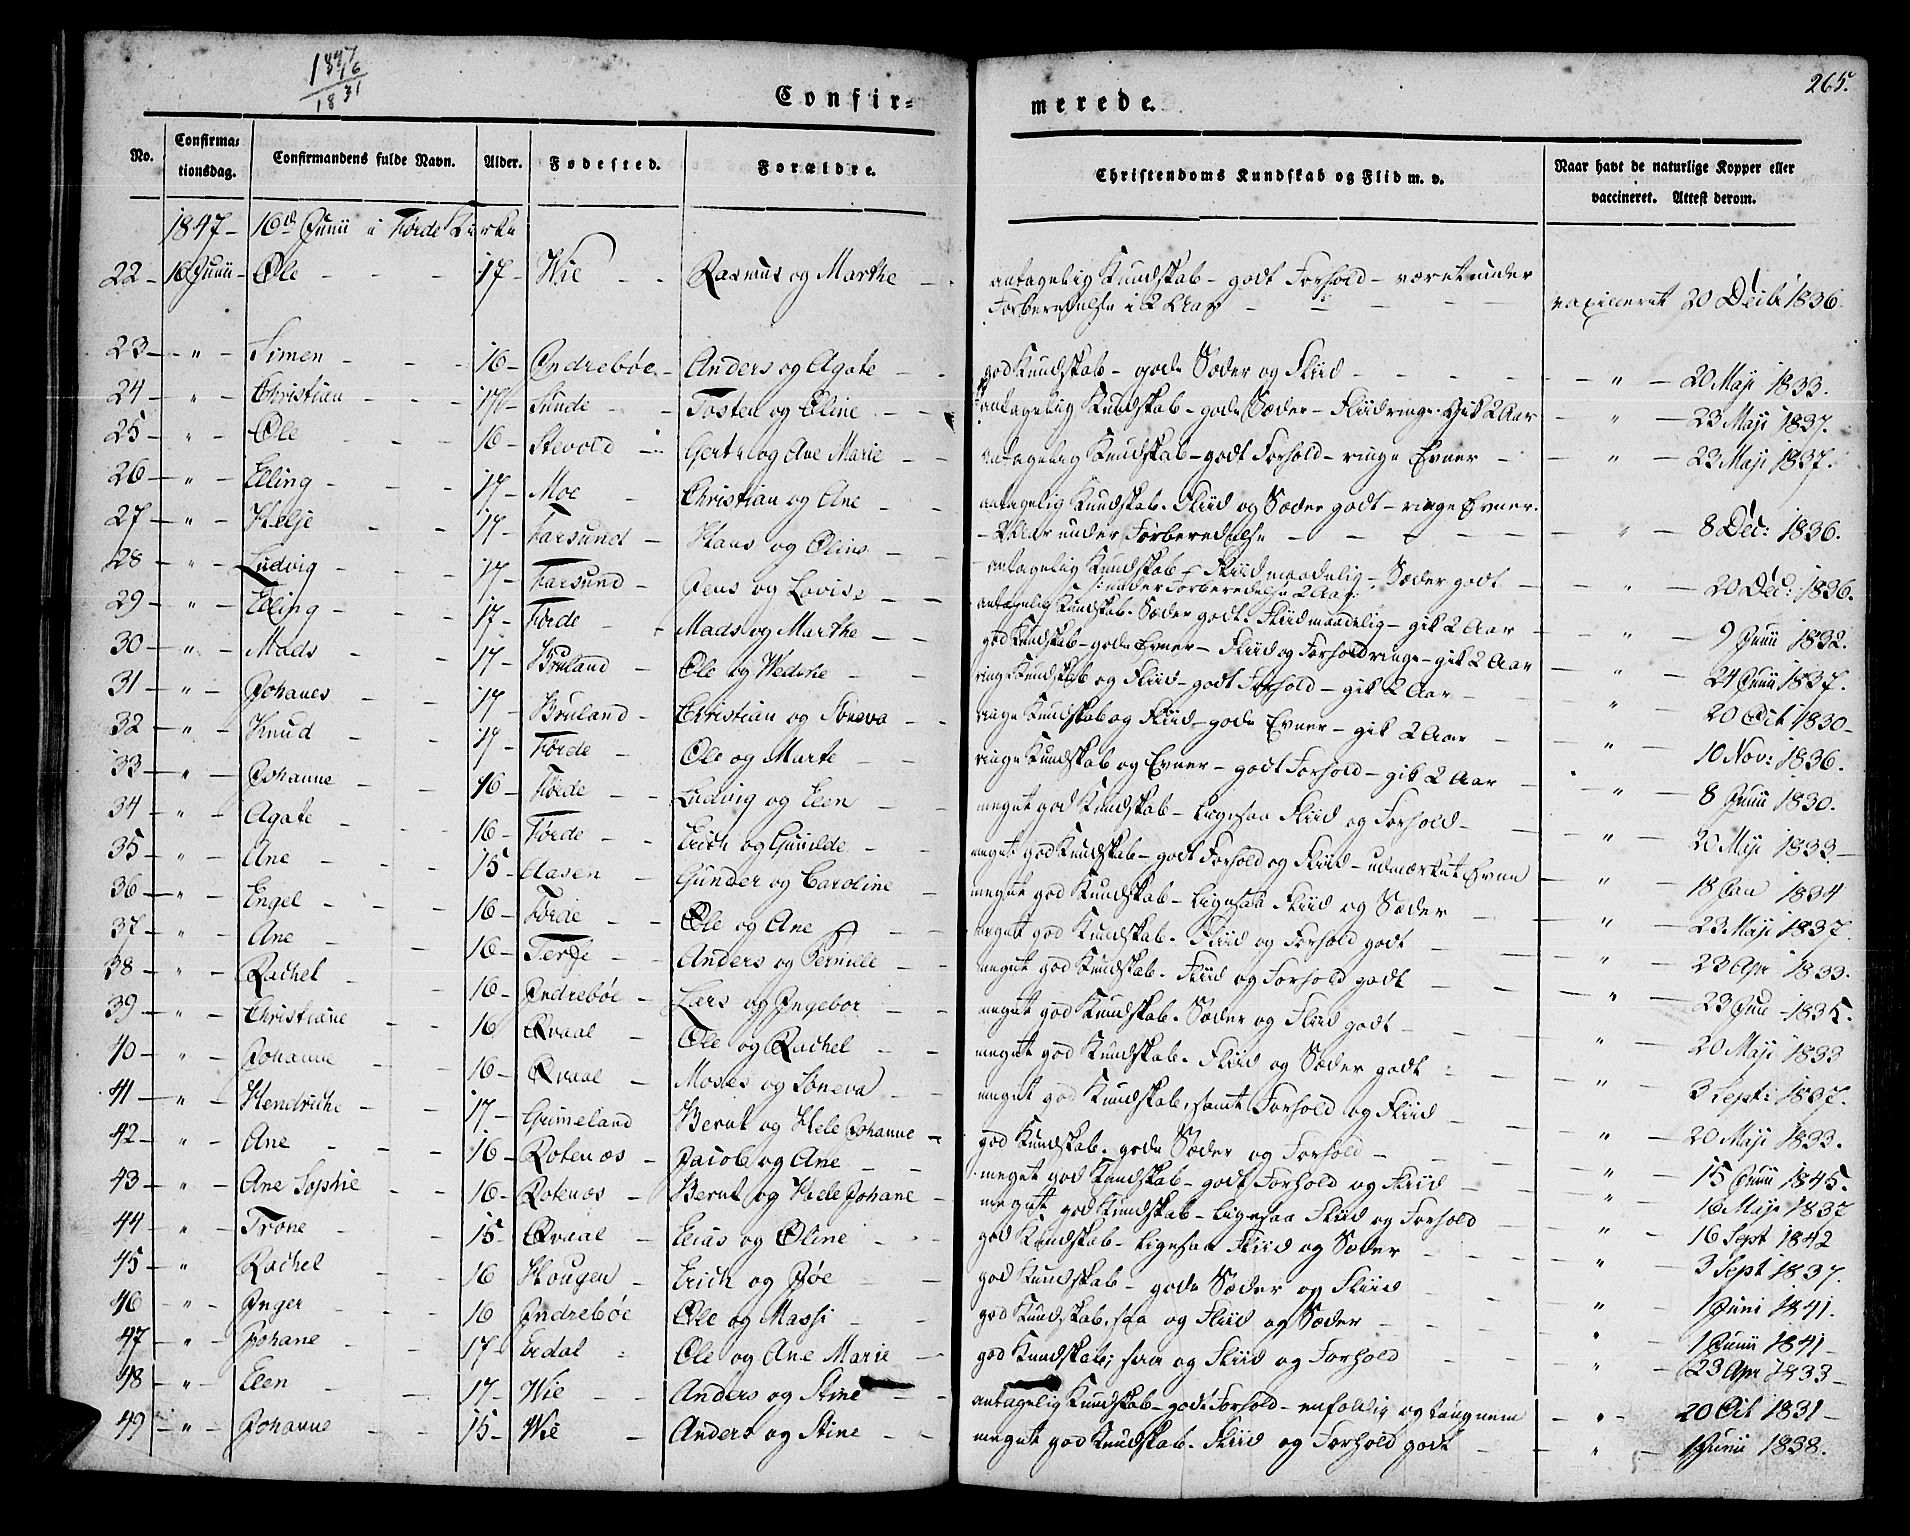 1847/6
1831
265.
Confir=
merede.
No. Confirma=tionsdag. Confirmandens fulde Navn. Alder. Fødested. Forældre. Christendoms Kundskab og Flid m. v. Naar havt de naturlige Kopper eller vaccineret. Attest derom.
1847 - 16d Junii i Førde Kirke
22 - 16 Junii - Ole - - - 17 - Wie - - Rasmus og Marthe - antagelig Kundskab - godt Forhold - været under
Forberedelse i 2 Aar - - - vaxineret 20 Decb 1836.
23 - " - Simen - - - 16 - Endrebøe - Anders og Agate - - god Kundskab - gode Sæder og Fliid - - - " - 20 Maji 1833.
24 - " - Christian - - - 17 - Sunde - - Tosten og Oline - - antagelig Kundskab - gode Sæder - Fliid ringe. Gik 2 Aar - " - 23 Maji 1837.
25 - " - Ole - - - 16 - Stevold - Gert og Ane Marie - - antagelig Kundskab - godt Forhold - ringe Evner - - " - 23 Maji 1837.
26 - " - Elling - - - 17 - Moe - Christian og Ane - - antagelig Kundskab. Fliid og Sæder godt - ringe Evner.
- 2 Aar under Forberedelse - - - " - 8 Dec: 1836.
27 - " - Helje - - 17 - Farsund - Hans og Oline - - antagelig Kundskab - Fliid maadelig - Sæder godt - " - 20 Dec: 1836.
under Forberedelse 2 Aar.
28 - " - Ludvig - - - 17 - Farsund - Jens og Lovise - - antagelig Kundskab. Sæder godt. Fliid maadelig - gik 2 Aar - " - 9 Junii 1832.
29 - " - Elling - - - 17 - Førde - - Mads og Marthe - - god Kundskab - gode Evner - Fliid og Forhold ringe - gik 2 Aar - " - 24 Junii 1837.
30 - " - Mads - - 17 - Bruland - Ole og Wedche - - ringe Kundskab og Fliid - godt Forhold - gik 2 Aar - - " - 20 Oct 1830 -
31 - " - Johanes - - 17 - Bruland - Christian og Søneva - - ringe Kundskab og Fliid - gode Evner - gik 2 Aar - - " - 10 Nov: 1836.
32 - " - Knud - - 17 - Førde - Ole og Marte - - ringe Kundskab og Evner - godt Forhold - gik 2 Aar - - " - 8 Junii 1830.
33 - " - Johanne - - 16 - Førde - - Ludvig og Elen - - meget god Kundskab - ligesaa Fliid og Forhold - - " - 20 Maji 1833 -
34 - " - Agate - - 16 - Førde - Erich og Gunilde - - meget god Kundskab - godt Forhold og Fliid - udmærket Evne - " - 18 Jan 1834
35 - " - Ane - - - 15 - Aasen - Gunder og Caroline - meget god Kundskab - ligesaa Fliid og Sæder - - " - 23 Maji 1837.
36 - " - Engel - - - 16 - Førde - - Ole og Ane - - meget god Kundskab. Fliid og Forhold godt - - " - 23 Apr 1833.
37 - " - Ane - - - 16 - Terje - - Anders og Pernille - - meget god Kundskab. Fliid og Forhold godt - - " - 23 Juni 1835.
38 - " - Rachel - - 16 - Indrebøe - Lars og Ingebor - - meget god Kundskab. Sæder og Fliid godt - - " - 20 Maji 1833
39 - " - Christiane - - 16 - Qvaal - Ole og Rachel - - meget god Kundskab. Fliid og Sæder godt - - " - 3 Sept: 1837.
40 - " - Johanne - - 16 - Qvaal - Moses og Søneva - - meget god Kundskab, samt Forhold og Fliid - - " - 20 Maji 1833.
41 - " - Hendriche - - 17 - Gumeland Bernt og Hele Johanne - god Kundskab. gode Sæder og Forhold - - " - 15 Junii 1845.
42 - " - Ane - - - 16 - Rotenæs - Jacob og Ane - - meget god Kundskab - godt Forhold og Fliid - - " - 16 Maji 1837
43 - " - Ane Sophie - - 16 - Rotenæs - Bernt og Hele Johane - meget god Kundskab - ligesaa Fliid og Forhold - - " - 16 Sept 1842
44 - " - Trone - - - 15 - Qvaal - Elias og Oline - - god Kundskab - ligesaa Fliid og Sæder - - " - 3 Sept 1837.
45 - " - Rachel - - 16 Hougen - Erich og Joe - - god Kundskab - gode Sæder og Fliid - - " - 1 Juni 1841.
46 - " - Inger - - - 16 Indrebøe Ole og Massi - - god Kundskab, saa og Fliid og Sæder - - " - 1 Junii 1841 -
47 - " - Johane - - - 17 - Erdal - Ole og Ane Marie - god Kundskab, saa og Fliid og Forhold - - " - 23 Apr 1833 -
48 - " - Elen - - - 17 - Wie - - Anders og Stine - - antagelig Kundskab - godt Forhold - enfoldig og tungnem - " - 20 Oct 1831 -
49 - " - Johanne - - 15 - Wie - Anders og Stine - - meget god Kundskab. Fliid og Forhold godt - - " - 1 Junii 1838.